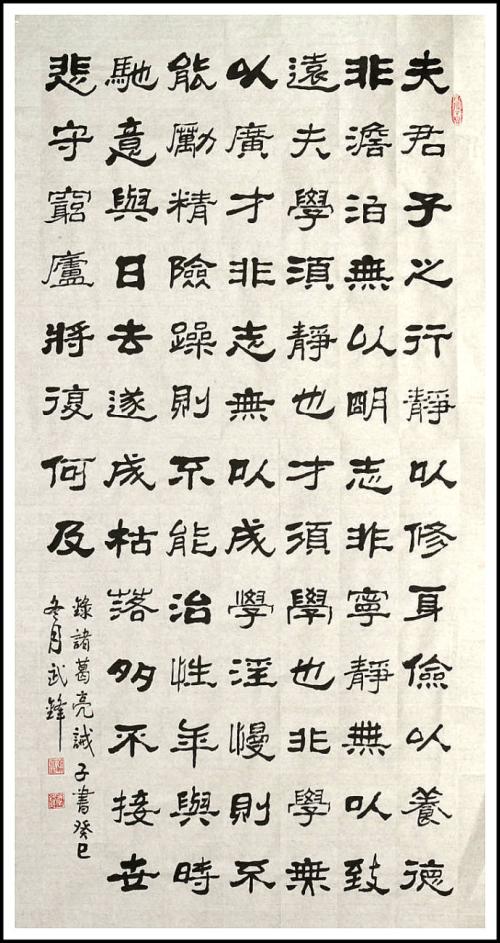 夫君子之行靜以修身儉以養德
非澹泊無以明志非寧靜無以致
遠夫學須靜也才須學也非學無
以廣才非志無以成學淫慢則不
能勵精險躁則不能治性年與時
馳意與日去遂成枯落多不接世
悲守窮廬將復何及
錄諸葛亮誡子書癸巳
冬月武鋒